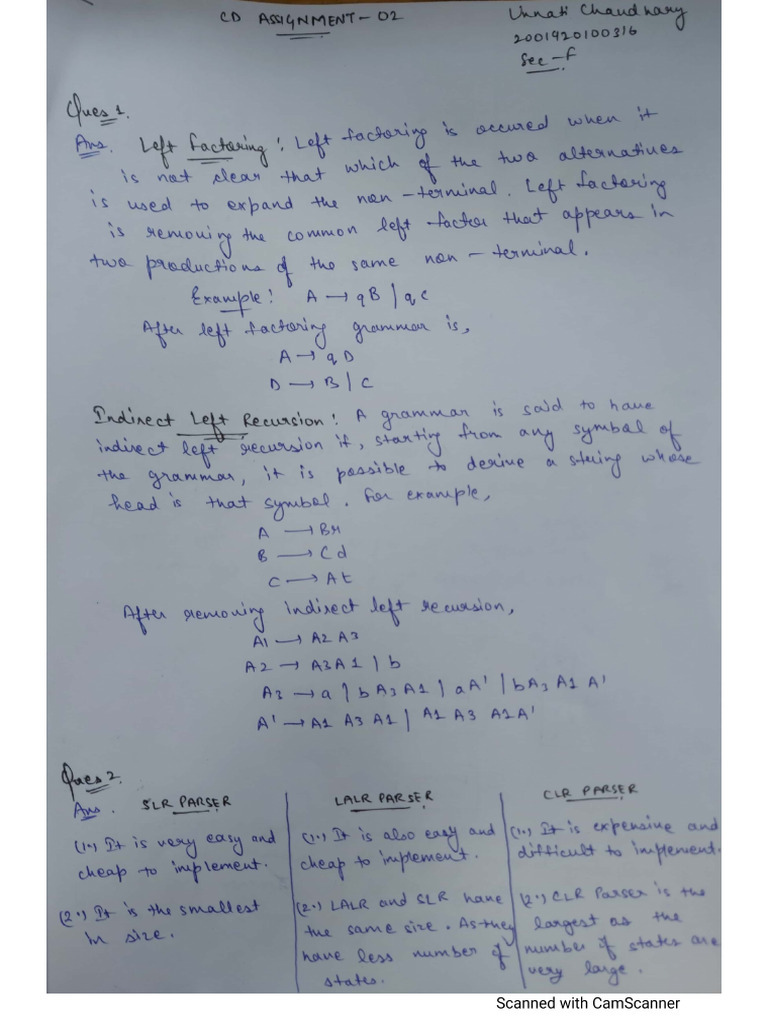 CD ASSIGNMENT - 02
Unnati Chaudhary
2001920100316
Sec - F
Ques 1.
Ans. Left Factoring : Left factoring is occured when it
is not clear that which of the two alternatives
is used to expand the non - terminal. Left factoring
is removing the common left factor that appears in
two productions of the same non - terminal.
Example : A → qB | qC
After left factoring grammar is,
A → qD
D → B | C
Indirect Left Recursion : A grammar is said to have
indirect left recursion if, starting from any symbol of
the grammar, it is possible to derive a string whose
head is that symbol. For example,
A → Br
B → Cd
C → At
After removing indirect left recursion,
A1 → A2 A3
A2 → A3 A1 | b
A3 → a | b A3 A1 | a A' | b A3 A1 A'
A' → A1 A3 A1 | A1 A3 A1 A'
Ques 2.
Ans. SLR PARSER
(1.) It is very easy and
cheap to implement.
(2.) It is the smallest
in size.
LALR PARSER
(1.) It is also easy and
cheap to implement.
(2.) LALR and SLR have
the same size. As they
have less number of
states.
CLR PARSER
(1.) It is expensive and
difficult to implement.
(2.) CLR Parser is the
largest as the
number of states are
very large.
Scanned with CamScanner